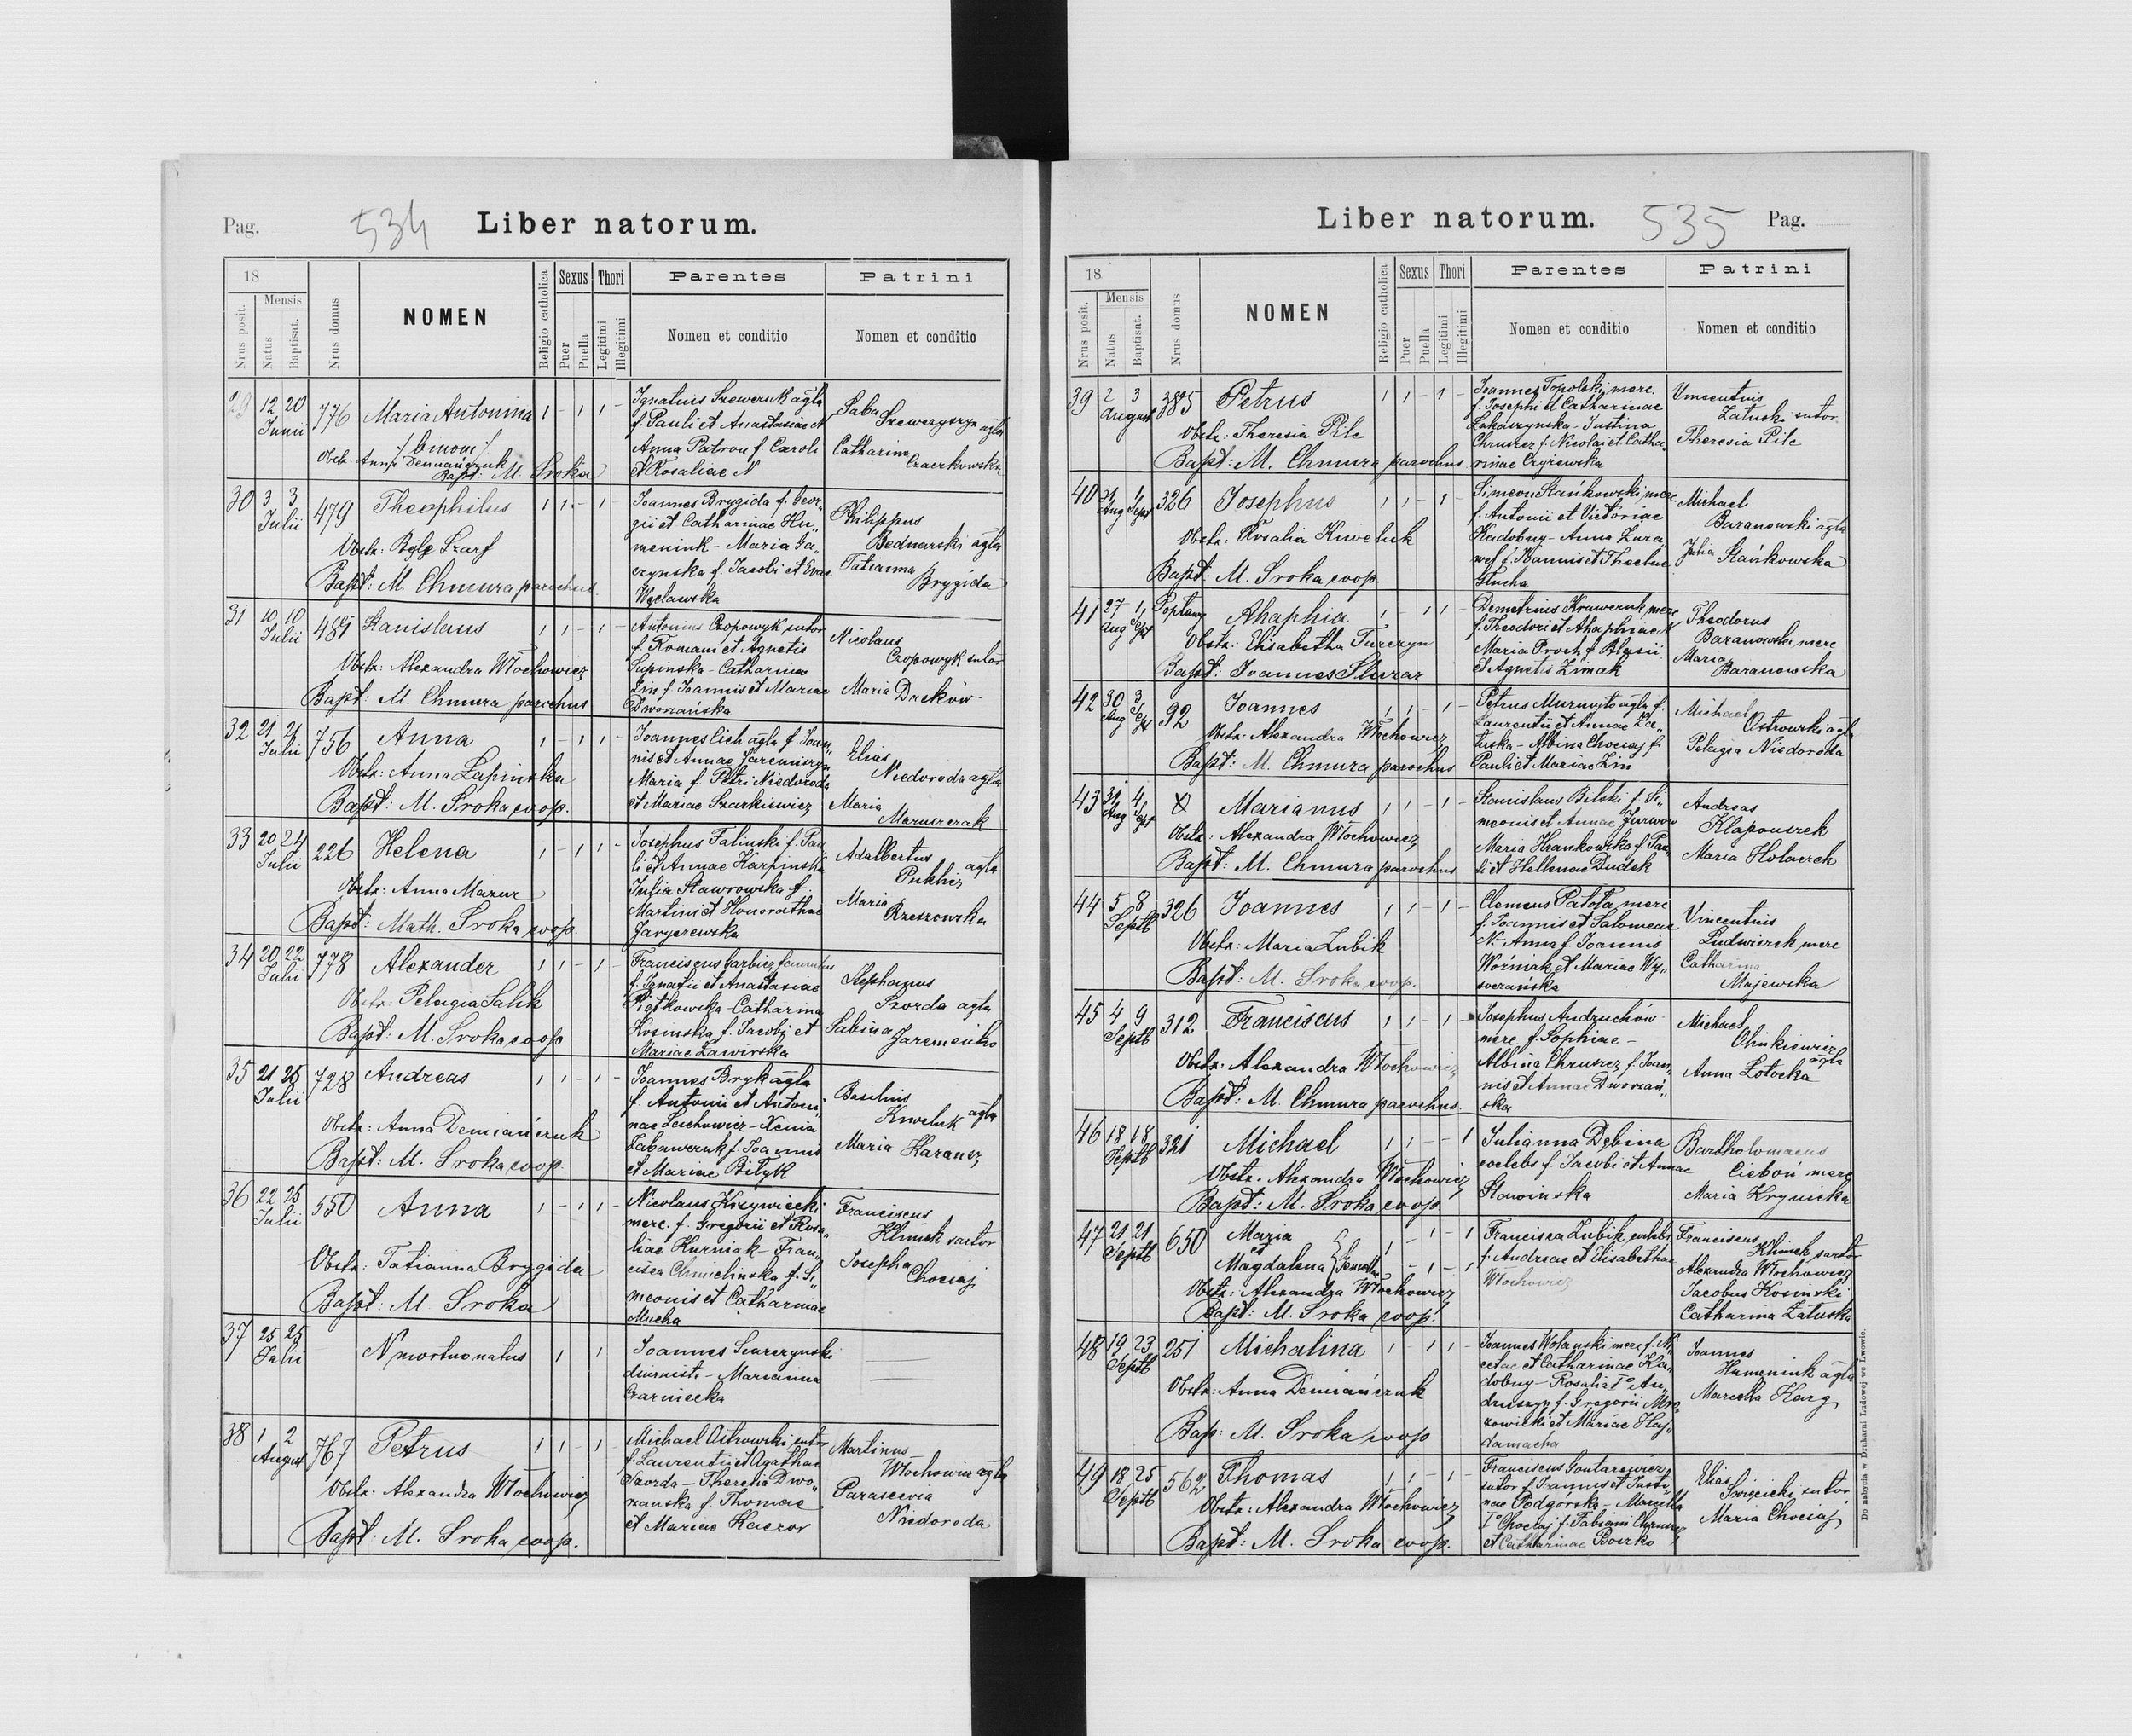 Pag.
534
Liber natorum.
18
Nrus posit.
Mensis
Natus
Baptisat.
Nrus domus
NOMEN
Religio catholica
Sexus
Puer
Puella
Thori
Legitimi
Illegitimi
Parentes
Nomen et conditio
Patrini
Nomen et conditio
29 12 20 Junii 776 Maria Antonina 1 - 1 1 -
/binom/
Obstx: Anna Demiańczuk
Bapt: M. Sroka
Ignatius Szewczuk agla
f. Pauli et Anastasiae N
Anna Patron f. Caroli
et Rosaliae N
Saba
Szewczyszyn agla
Catharina
Czaczkowska
30 3 3 Julii 479 Theophilus 1 1 - 1 -
Obstx: Szarf
Bapt: M. Chmura parochus
Joannes Brygida f. Geor„
gii et Catharinae Hu„
meniuk - Maria Ga„
czynska f. Jacobi et Evae
Węclawska
Philippus
Bednarski agla
Tatianna
Brygida
31 10 10 Julii 481 Stanislaus 1 1 - 1 -
Obstx: Alexandra Włochowicz
Bapt: M. Chmura parochus
Antonius Czopowyk sutor
f. Romani et Agnetis
Lupinska - Catharina
Zin f. Joannis et Mariae
Dworzańska
Nicolaus
Czopowyk sutor
Maria Dreków
32 21 21 Julii 756 Anna 1 - 1 1 -
Obstx: Anna Lapinska
Bapt: M. Sroka coop.
Joannes Cich agla f. Joan„
nis et Annae
Maria f. Petri Niedoroda
et Mariae Szarkiewicz
Elias
Niedoroda agla
Maria
Maruszczak
33 20 24 Julii 226 Helena 1 - 1 1 -
Obstx: Anna Mazur
Bapt: Math. Sroka coop.
Josephus Falinski f. Pau„
li et Annae Karpinska
Julia Stawrowska f.
Martini et Honorathae
Jaryszewska
Adalbertus agla
Maria
Rzeszowska
34 20 22 Julii 778 Alexander 1 1 - 1 -
Obstx: Pelagia Salik
Bapt: M. Sroka coop
Franciscus Garbicz famulus
f. Ignatii et Anastasiae
Piętkowska - Catharina
Kosinska f. Jacobi et
Mariae Zawirska
Stephanus
Szorda agla
Sabina Jaremenko
35 21 25 Julii 728 Andreas 1 1 - 1 -
Obstx: Anna Demiańczuk
Bapt: M. Sroka coop.
Joannes Bryk agla
f. Antonii et Antoni„
nae Lechowicz - Xenia
Zabawczuk f. Joannis
et Mariae Bilyk
Basilius
Kiweluk agla
Maria Harausz
36 22 25 Julii 550 Anna 1 - 1 1 -
Obstx: Tatianna Brygida
Bapt: M. Sroka
Nicolaus Krzywiecki
merc. f. Gregorii et Rosa„
liae Kurniak - Fran„
cisca Chmielinska f. Si„
meonis et Catharinae
Mucha
Franciscus
Klimek sartor
Josepha
Chociaj
37 25 25 Julii N mortuo natus 1 1
Joannes Szarczynski
diurnista - Marianna
Czarniecka
38 1 2 August 767 Petrus 1 1 - 1 -
Obstx: Alexandra Włochowicz
Bapt: M. Sroka coop.
Michael Ostrowski sutor
f. Laurentii et Agathae
Szorda - Theresia Dwo„
rzanska f. Thomae
et Mariae Kaczor
Martinus
Włochowicz agla
Parascevia
Niedoroda
Liber natorum.
535
Pag.
18
Nrus posit.
Mensis
Natus
Baptisat.
Nrus domus
NOMEN
Religio catholica
Sexus
Puer
Puella
Thori
Legitimi
Illegitimi
Parentes
Nomen et conditio
Patrini
Nomen et conditio
39 2 3 August 385 Petrus 1 1 - 1 -
Obstx: Theresia Pilc
Bapt: M. Chmura parochus
Joannes Topolski merc.
f. Josephi et Catharinae
Lukaszynska - Justina
Chruszcz f. Nicolai et Catha„
rinae Czyżewska
Vincentius
Zatuski sutor
Theresia Pilc
40 31 Aug 1 Sept 326 Josephus 1 1 - 1 -
Obstx: Rosalia Kiweluk
Bapt: M. Sroka coop
Simeon Stańkowski merc.
f. Antonii et Victoriae
Kadobny - Anna Zura„
wel f. Joannis et Theclae
Głucha
Michael
Baranowski agla
Julia Stańkowska
41 27 Aug 1 Sept Popławy Ahaphia 1 - 1 1 -
Obstx: Elisabetha Turczyn
Bapt: Joannes Slurar
Demetrius Krawczuk merc
f. Theodori et Ahaphiae N
Maria Proch f. Blasii
et Agnetis Zimak
Theodorus
Baranowski merc
Maria
Baranowska
42 30 Aug 3 Sept 92 Joannes 1 1 - 1 -
Obstx: Alexandra Włochowicz
Bapt: M. Chmura parochus
Petrus Murmyło agla f.
Laurentii et Annae Za„
łuska - Albina Chociaj f.
Pauli et Mariae Zin
Michael
Ostrowski agla
Pelagia Niedoroda
43 31 Aug 4 Sept X Marianus 1 1 - 1 -
Obstx: Alexandra Włochowicz
Bapt: M. Chmura parochus
Stanislaus Bilski f. Si„
meonis et Annae Jurwow
Maria Hrankowska f. Pau„
li et Hellenae Dudek
Andreas
Klapouszek
Maria Holaczek
44 5 8 Septb 326 Joannes 1 1 - 1 -
Obstx: Maria Zubik
Bapt: M. Sroka coop.
Clemens Patoła merc
f. Joannis et Salomeae
N. Anna f. Joannis
Woźniak et Mariae Wy„
soczańska
Vincentius
Ludwiczek merc
Catharina
Majewska
45 4 9 Septb 312 Franciscus 1 1 - 1 -
Obstx: Alexandra Włochowicz
Bapt: M. Chmura parochus.
Josephus Andruchów
merc. f. Sophiae -
Albina Chruszcz f. Joan„
nis et Annae Dworzań„
ska
Michael
Ohinkiewicz
agla
Anna Łotocka
46 18 18 Septb 321 Michael 1 1 - - 1
Obstx: Alexandra Włochowicz
Bapt: M. Sroka coop
Julianna Dębina
coelebs f. Jacobi et Annae
Sławinska
Bartholomaeus
Cichoń merc
Maria Krynicka
47 21 21 Septb 650 Maria 1 - 1 - 1
et
Magdalena Gemellae - 1 - 1
Obstx: Alexandra Włochowicz
Bapt: M. Sroka coop.
Francisca Zubik coelebs
f. Andreae et Elisabethae
Włochowicz
Franciscus
Klimek sartor
Alexandra Włochowicz
Jacobus Kosinski
Catharina Zatuska
48 19 23 Septb 251 Michalina 1 - 1 1 -
Obstx: Anna Demiańczuk
Bap: M. Sroka coop
Joannes Wolanski merc f. Ni„
cetae et Catharinae Ka„
dobny - Rosalia I° An„
druszyn f. Gregorii Mro„
zowicki et Mariae Haj„
damacha
Joannes
Humeniuk agla
Marcella Karg
49 18 25 Septb 562 Thomas 1 1 - 1 -
Obstx: Alexandra Włochowicz
Bapt: M. Sroka coop.
Franciscus Gontarewicz
sutor f. Joannis et Justi„
nae Podgórska - Marcella
I° Chociaj f. Fabiani Chruszcz
et Catharinae Boczko
Elias
Swięcicki sutor
Maria Chociaj
Do nabycia w Drukarni Ludowej we Lwowie.